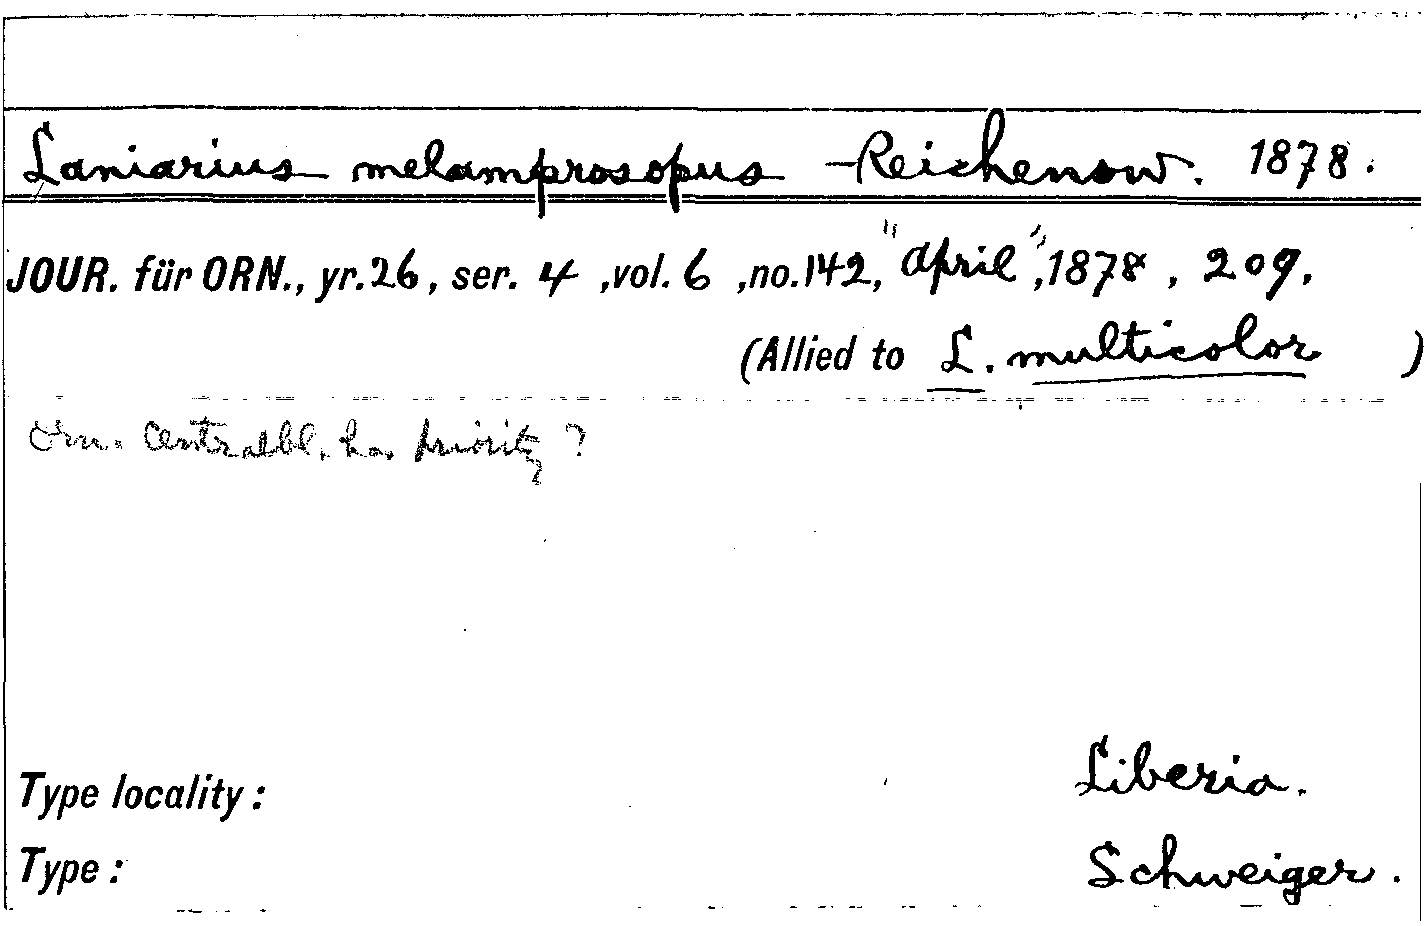 Laniarius melamprosopus Reichenow. 1878.
JOUR. für ORN., yr. 26, ser. 4, vol. 6, no. 142, "April", 1878, 209.
(Allied to L. multicolor )
Orn. Centralbl. has priority?
Type locality: Liberia.
Type: Schweiger.